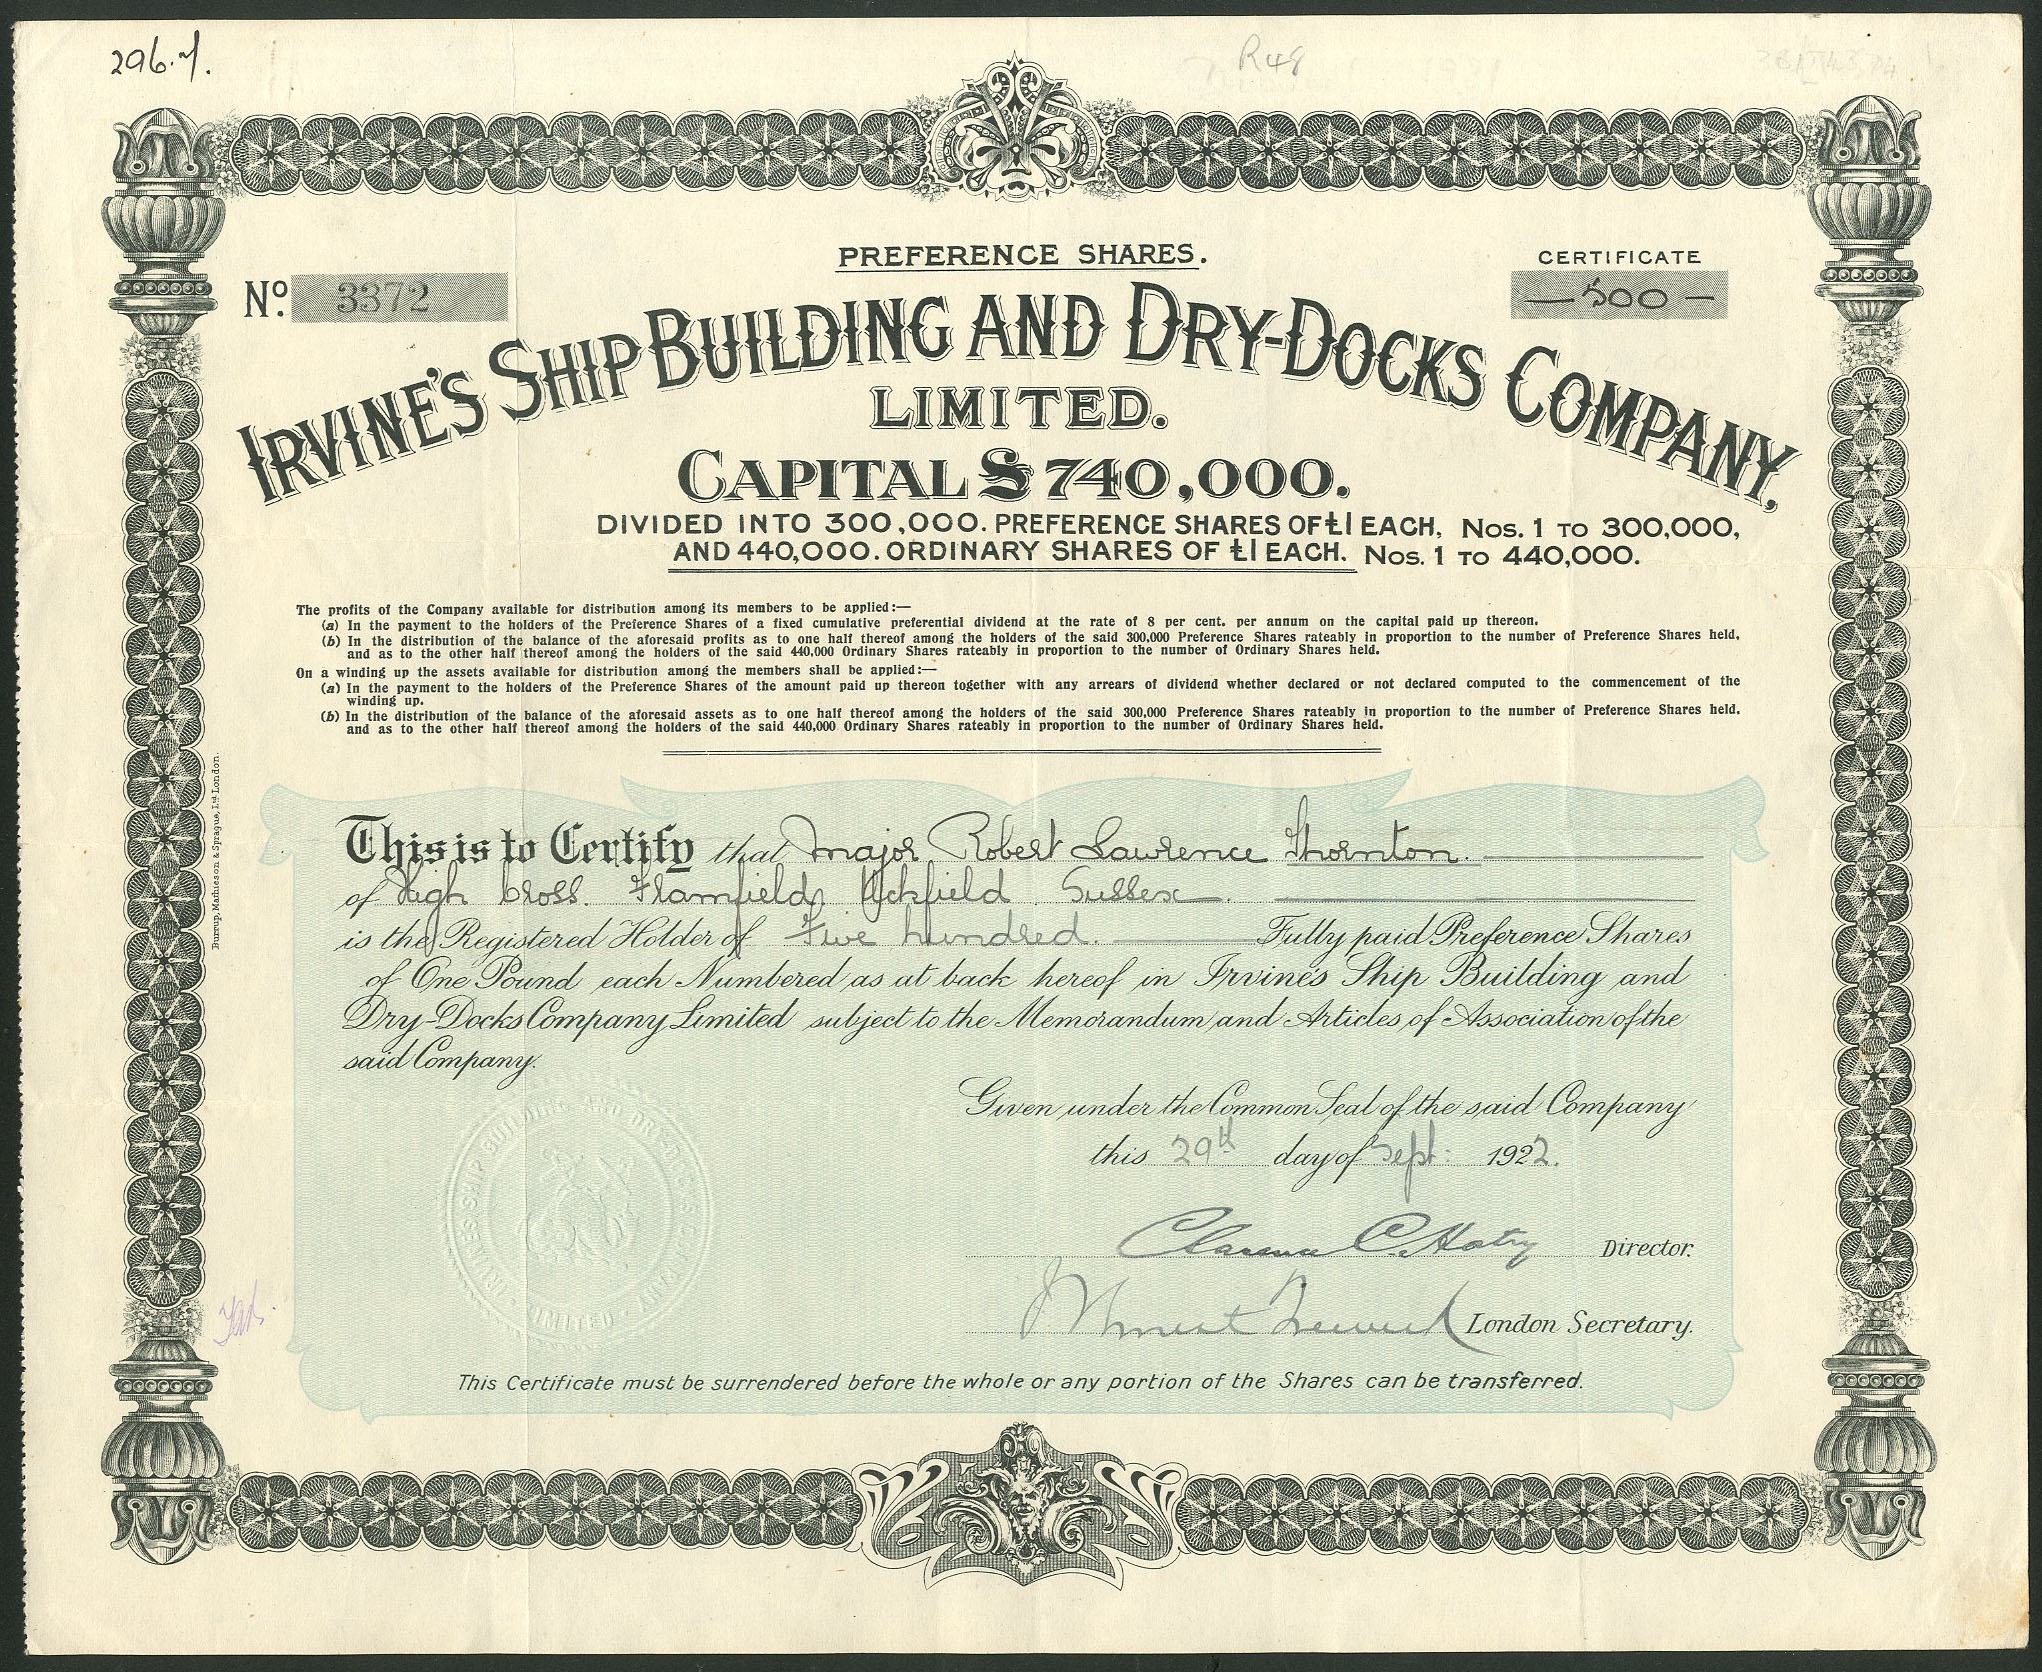 296.7.
R48
PREFERENCE SHARES.
CERTIFICATE
No. 3372
— 500 —
IRVINE'S SHIP BUILDING AND DRY-DOCKS COMPANY,
LIMITED.
CAPITAL £740,000.
DIVIDED INTO 300,000. PREFERENCE SHARES OF £1 EACH, Nos. 1 TO 300,000,
AND 440,000. ORDINARY SHARES OF £1 EACH. Nos. 1 TO 440,000.
The profits of the Company available for distribution among its members to be applied:—
(a) In the payment to the holders of the Preference Shares of a fixed cumulative preferential dividend at the rate of 8 per cent. per annum on the capital paid up thereon.
(b) In the distribution of the balance of the aforesaid profits as to one half thereof among the holders of the said 300,000 Preference Shares rateably in proportion to the number of Preference Shares held,
and as to the other half thereof among the holders of the said 440,000 Ordinary Shares rateably in proportion to the number of Ordinary Shares held.
On a winding up the assets available for distribution among the members shall be applied:—
(a) In the payment to the holders of the Preference Shares of the amount paid up thereon together with any arrears of dividend whether declared or not declared computed to the commencement of the
winding up.
(b) In the distribution of the balance of the aforesaid assets as to one half thereof among the holders of the said 300,000 Preference Shares rateably in proportion to the number of Preference Shares held.
and as to the other half thereof among the holders of the said 440,000 Ordinary Shares rateably in proportion to the number of Ordinary Shares held.
Burrup, Mathieson & Sprague, Ltd London.
This is to Certify that Major Robert Lawrence Thornton.
of High Cross. Framfield, Uckfield. Sussex.
is the Registered Holder of Five hundred. Fully paid Preference Shares
of One Pound each Numbered as at back hereof in Irvine's Ship Building and
Dry-Docks Company Limited subject to the Memorandum and Articles of Association of the
said Company.
Given under the Common Seal of the said Company
this 29th day of Sept: 1922.
IRVINE'S SHIP BUILDING AND DRY-DOCKS COMPANY LIMITED
Clarence C. Hatry Director.
London Secretary.
This Certificate must be surrendered before the whole or any portion of the Shares can be transferred.